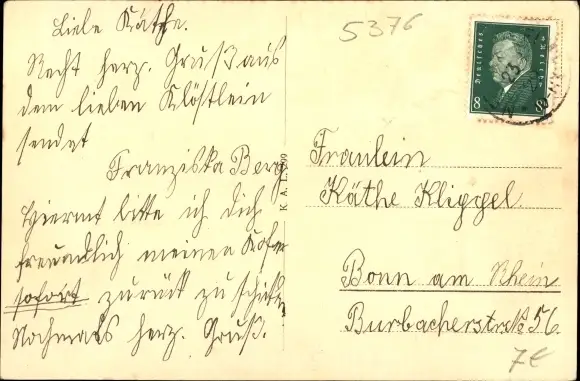 Liebe Käthe.
Recht herz. Gruß aus
dem lieben Klöstlein
sendet
Franziska Berg
Hiermit bitte ich dich
freundlich meinen Kofer
sofort zurück zu schicken
Nochmals herz. Gruß.
K. A. L.
5376
Deutsches Reich
8 8
23
Fräulein
Käthe Kliggel.
Bonn am Rhein
Burbacherstraße 56
7€